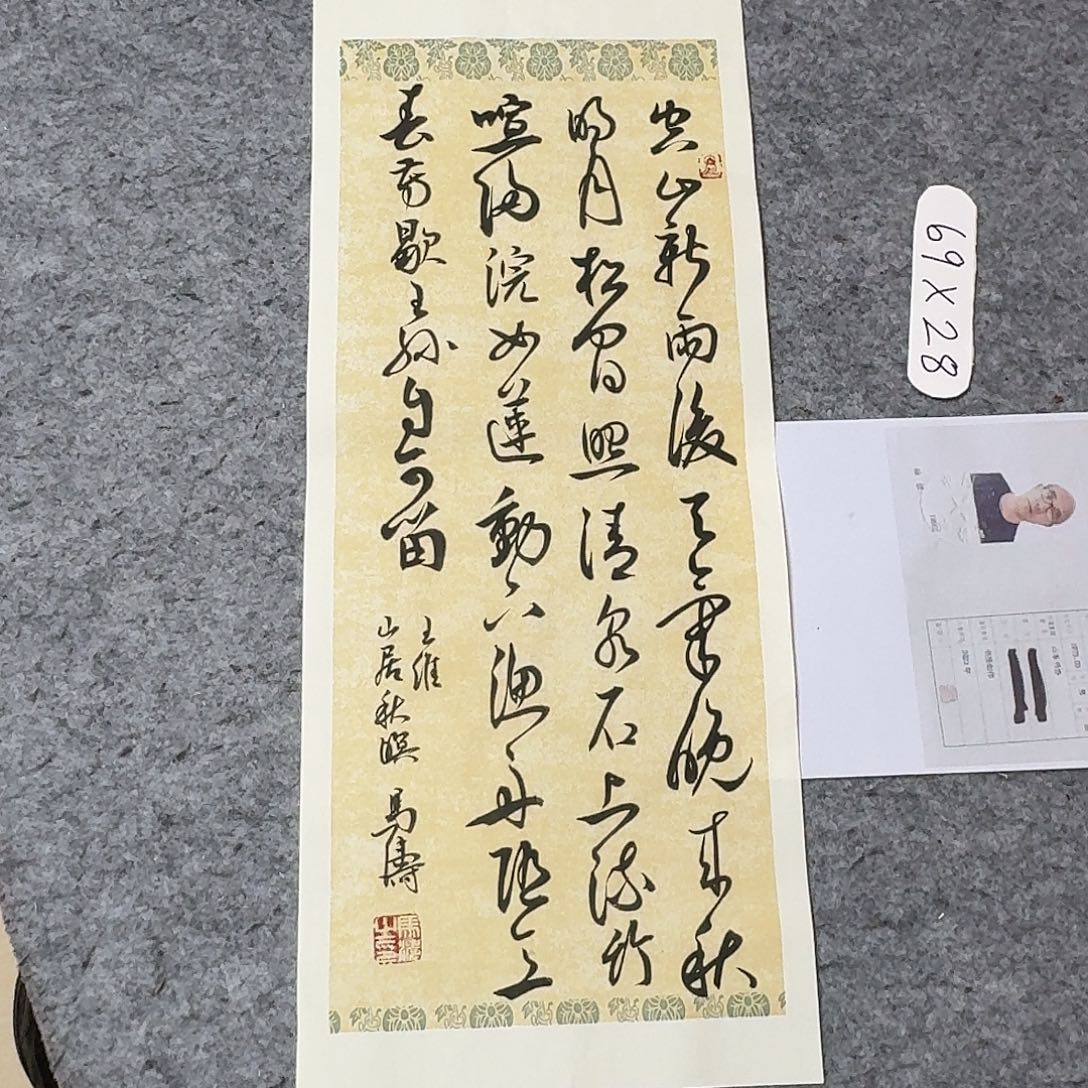 空山新雨後天氣晚来秋
明月松間照清泉石上流竹
喧歸浣女蓮動下漁舟隨意
春芳歇王孫自可留
王維
山居秋暝 馬濤
馬濤之印
69X28